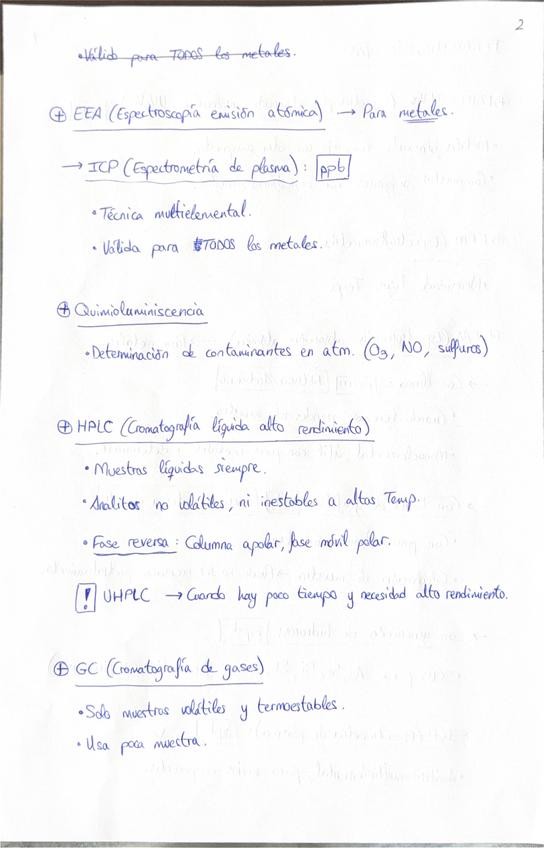 2
• Válido para TODOS los metales.
⊕ EEA (Espectroscopía emisión atómica) → Para metales.
→ ICP (Espectrometría de plasma): ppb
• Técnica multielemental.
• Válida para TODOS los metales.
⊕ Quimioluminiscencia
• Determinación de contaminantes en atm. (O3, NO, sulfuros)
⊕ HPLC (Cromatografía líquida alto rendimiento)
• Muestras líquidas siempre.
• Analitos no volátiles, ni inestables a altas Temp.
• Fase reversa: Columna apolar, fase móvil polar.
! UHPLC → Cuando hay poco tiempo y necesidad alto rendimiento.
⊕ GC (Cromatografía de gases)
• Solo muestras volátiles y termoestables.
• Usa poca muestra.